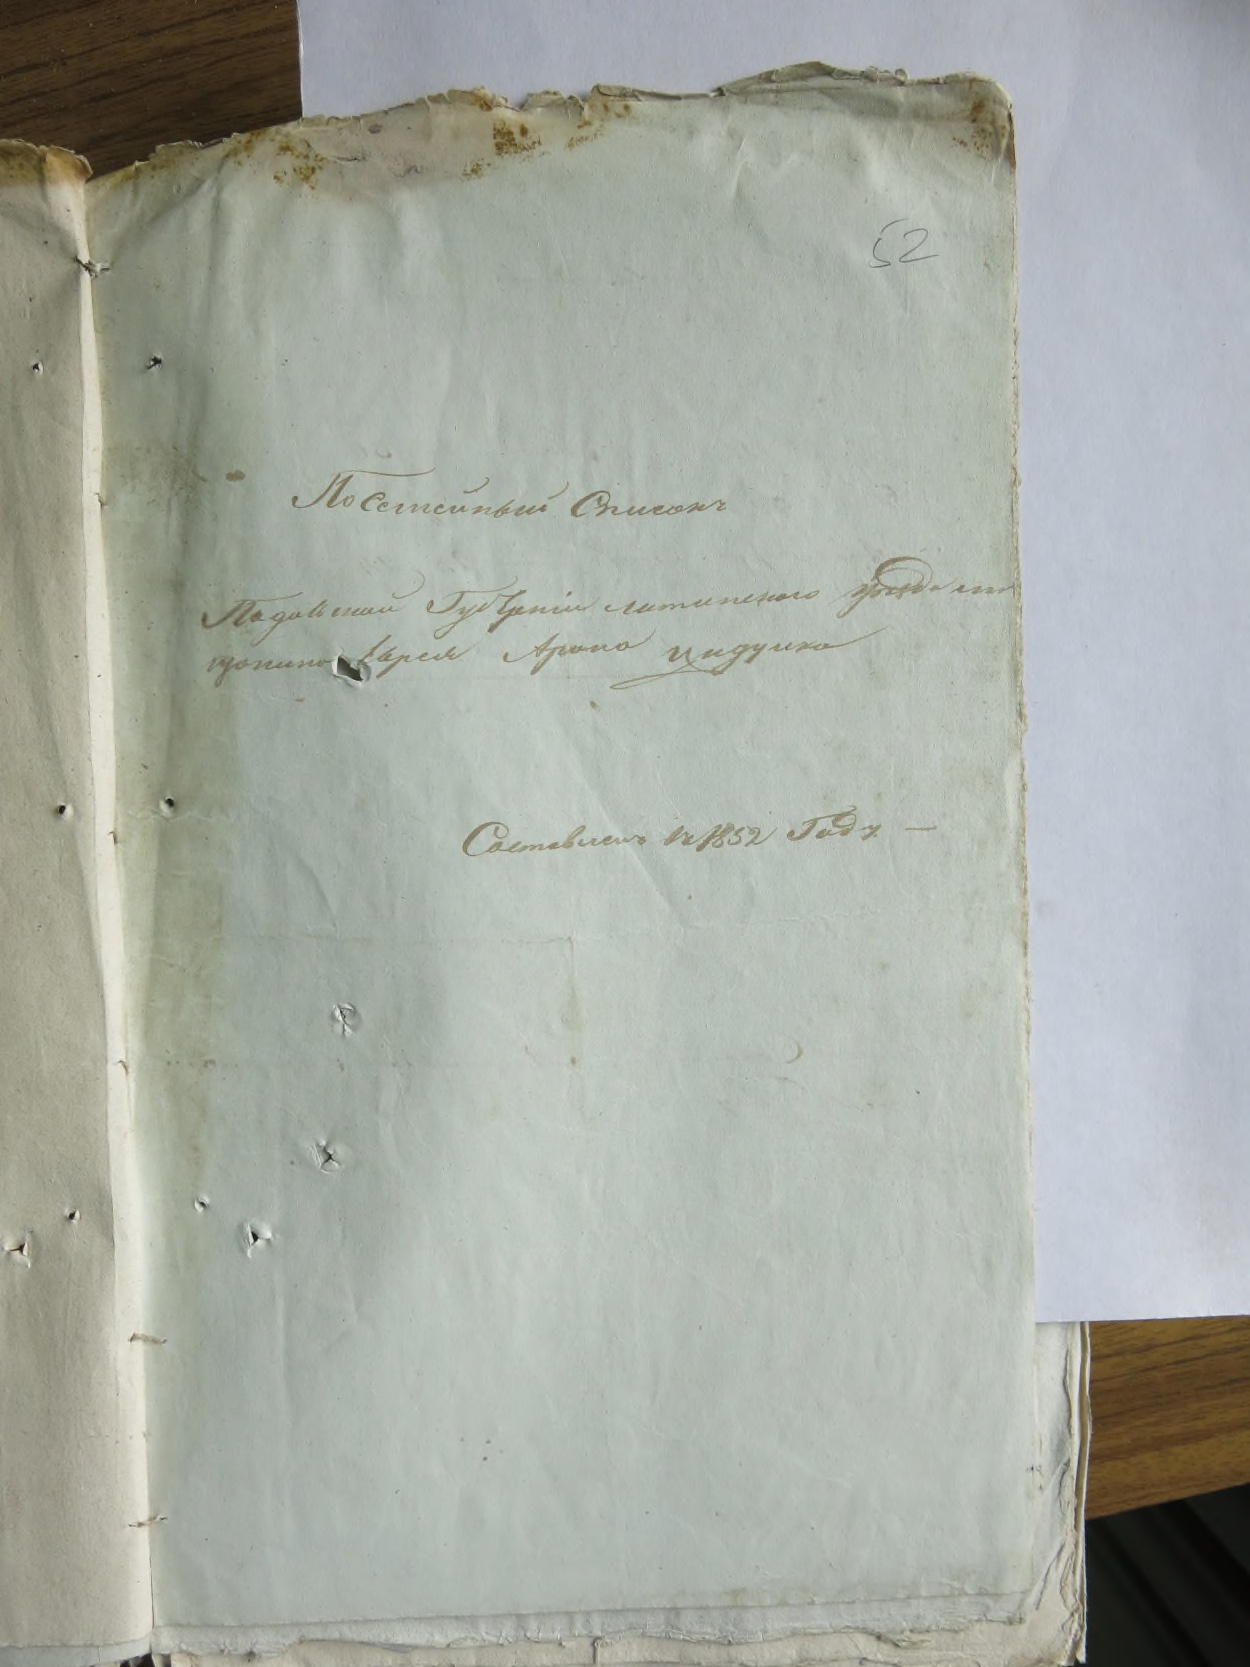 52
Посемейный Списокъ
Подольской Губерніи литинского уѣзда
Еврея Арона Цидулко
Составленъ въ 1852 Году. —